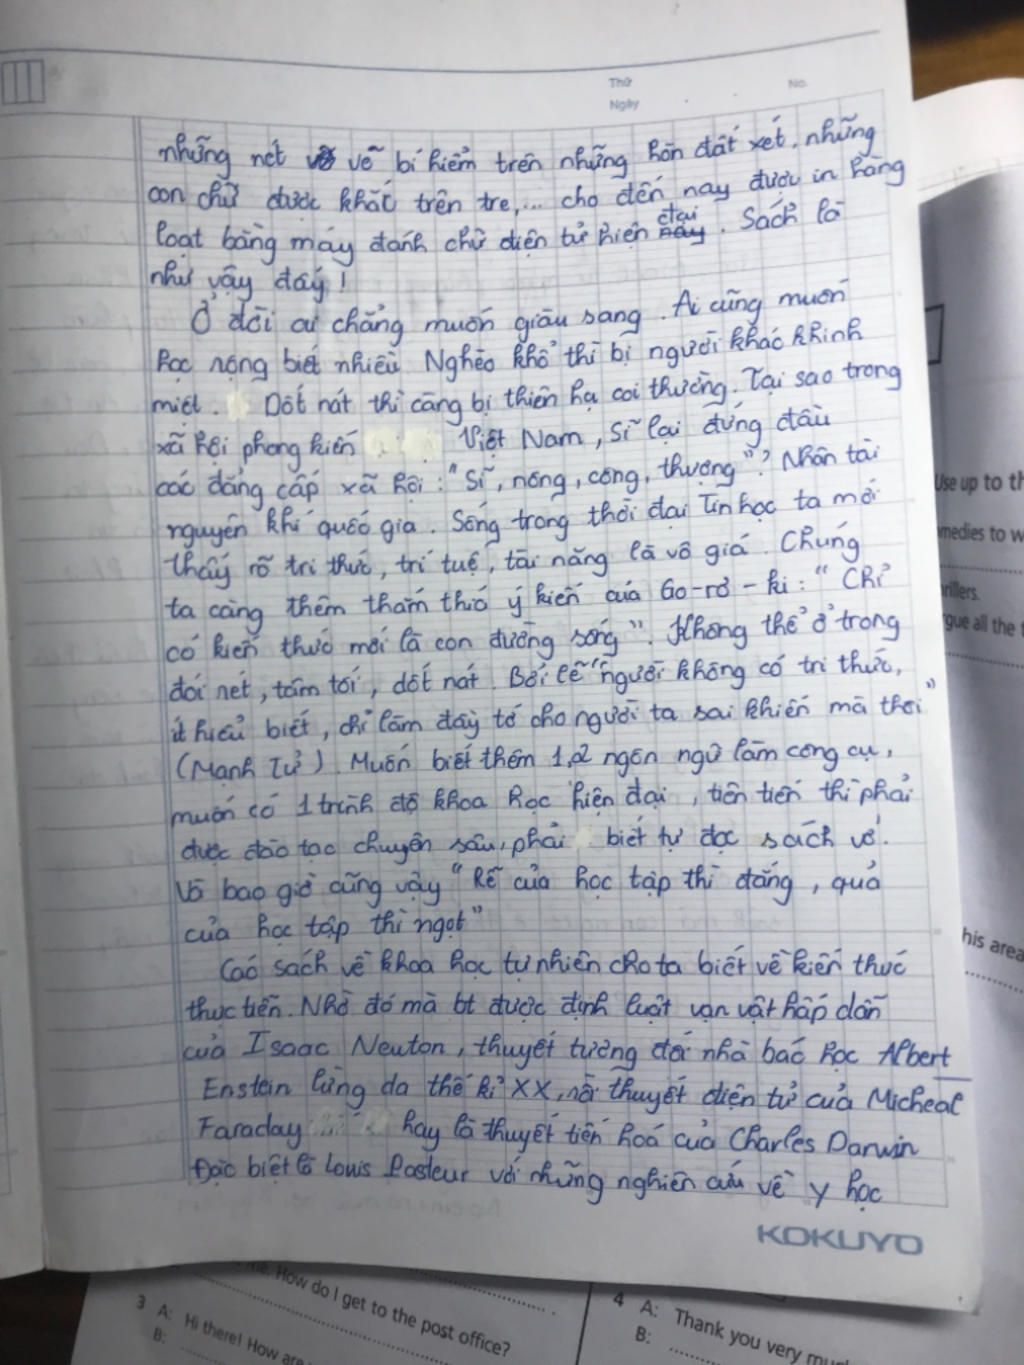 Thứ
No.
Ngày
những nét vẽ bí hiểm trên những hòn đất xét, những
con chữ được khắc trên tre,... cho đến nay được in hàng
loạt bằng máy đánh chữ điện tử hiện đại. Sách là
như vậy đấy!
Ở đời ai chẳng muốn giàu sang. Ai cũng muốn
học rộng biết nhiều Nghèo khổ thì bị người khác khinh
miệt. Dốt nát thì càng bị thiên hạ coi thường. Tại sao trong
xã hội phong kiến Việt Nam, sĩ lại đứng đầu
các đẳng cấp xã hội: "Sĩ, nông, công, thương"? Nhân tài
nguyên khí quốc gia. Sống trong thời đại tin học ta mới
thấy rõ tri thức, trí tuệ, tài năng là vô giá. Chúng
ta càng thêm thấm thía ý kiến của Go-rơ-ki: "Chỉ
có kiến thức mới là con đường sống". Không thể ở trong
đói nét, tăm tối, dốt nát. Bởi lẽ "người không có tri thức,
ít hiểu biết, chỉ làm đầy tớ cho người ta sai khiến mà thôi"
(Mạnh Tử). Muốn biết thêm 1,2 ngôn ngữ làm công cụ,
muốn có 1 trình độ khoa học hiện đại, tiên tiến thì phải
được đào tạo chuyên sâu, phải biết tự đọc sách vở.
Và bao giờ cũng vậy "Rễ của học tập thì đắng, quả
của học tập thì ngọt"
Các sách về khoa học tự nhiên cho ta biết về kiến thức
thực tiễn. Nhờ đó mà bt được định luật vạn vật hấp dẫn
của Isaac Newton, thuyết tương đối nhà bác học Albert
Enstein lừng da thế kỉ XX, rồi thuyết điện tử của Micheal
Faraday hay là thuyết tiến hoá của Charles Darwin
Đặc biệt là Louis Pasteur với những nghiên cứu về y học
KOKUYO
Use up to th
medies to w
rillers.
gue all the t
his area
me. How do I get to the post office?
3 A: Hi there! How are
B:
4 A: Thank you very mu
B: